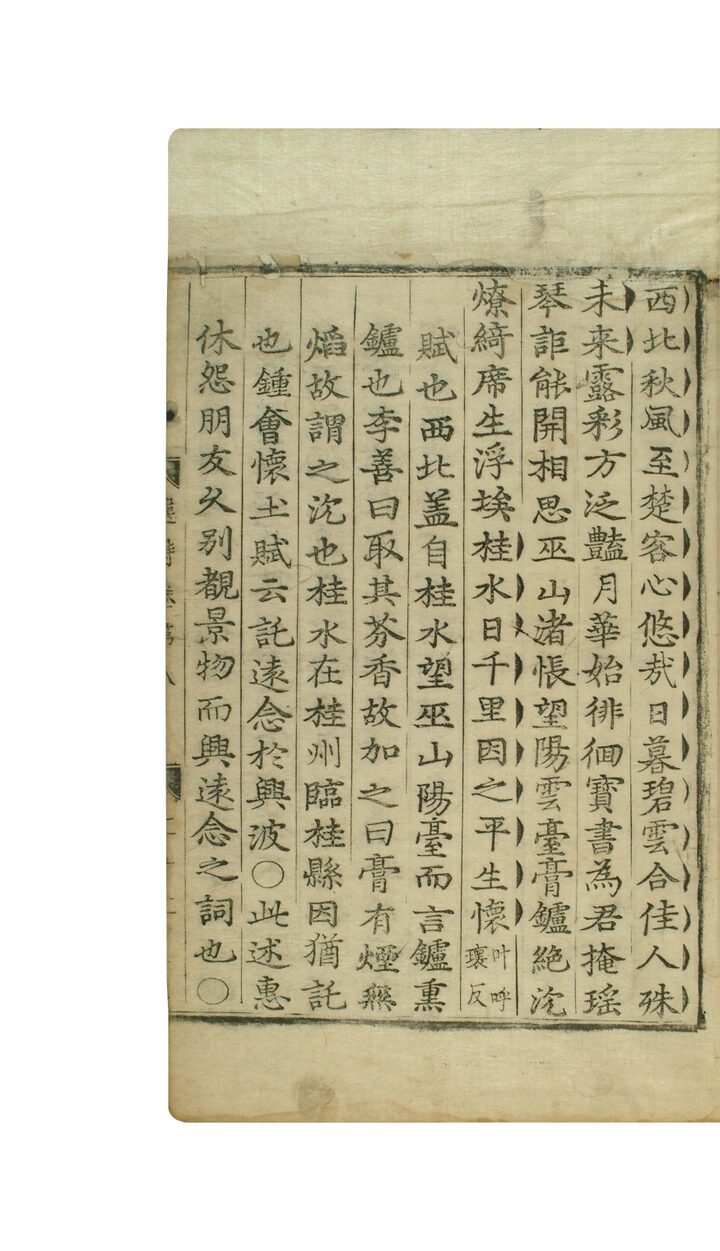 西北秋風至楚客心悠㢤日暮碧雲合佳人殊
未来露彩方泛豔月華始徘徊寶書為君掩瑶
琴詎能開相思巫山渚悵望陽雲臺膏鑪絶沈
燎綺席生浮埃桂水日千里因之平生懷叶呼瓌反
賦也西北盖自桂水望巫山陽臺而言鑪熏
鑪也李善曰取其芬香故加之曰膏有煙無
熖故謂之沈也桂水在桂州臨桂縣因猶託
也鍾會懷土賦云託遠念於興波〇此述惠
休怨朋友久别覩景物而興遠念之詞也〇
選詩卷第八